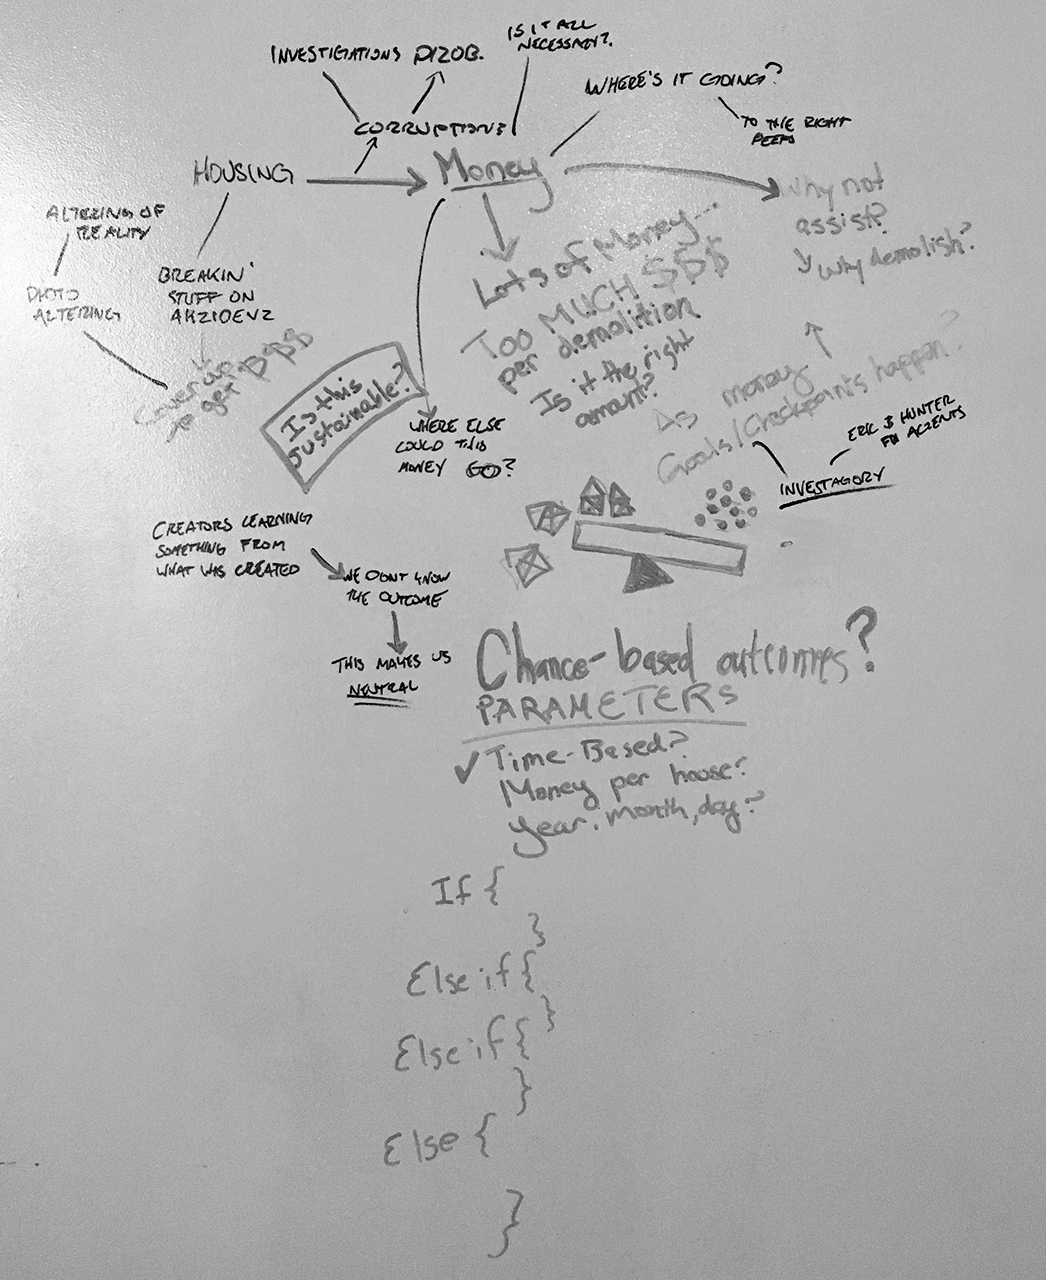 IS IT ALL
NECESSARY?
INVESTIGATIONS PROB.
WHERE'S IT GOING?
CORRUPTIONS
TO THE RIGHT
PEEPS
HOUSING
Money
Why not
assist?
Why demolish?
ALTERING OF
REALITY
BREAKIN'
STUFF ON
PHOTO
ALTERING
Lots of Money...
TOO MUCH $$$
per demolition
Is it the right
amount?
Cover up
to get $$$
Is this
sustainable?
WHERE ELSE
COULD THIS
MONEY GO?
As money
Goals/Checkpoints happen?
ERIC & HUNTER
AGENTS
INVESTAGORY
CREATORS LEARNING
SOMETHING FROM
WHAT WAS CREATED
WE DONT KNOW
THE OUTCOME
THIS MAKES US
NEUTRAL
Chance-based outcomes?
PARAMETERS
✓ Time-Based?
Money per house?
Year, month, day?
If {
}
Else if {
}
Else if {
}
Else {
}